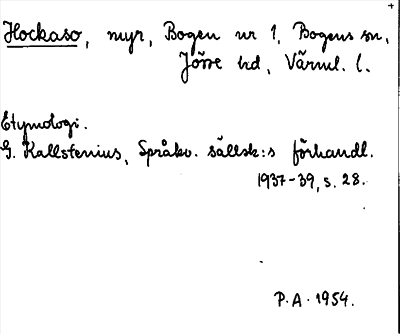 Hockaso, myr, Bogen nr 1, Bogens sn,
Jösse hd, Värml. l.
Etymologi.
G. Kallstenius, Språkv. sällsk:s förhandl.
1937-39, s. 28.
P.A. 1954.